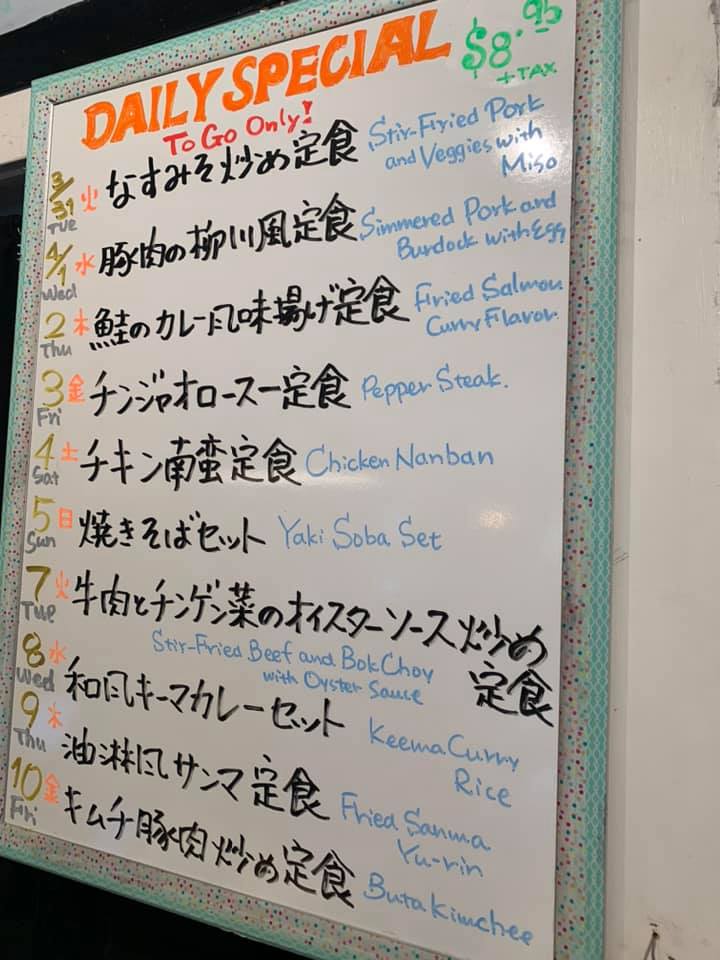 DAILY SPECIAL $8.95
+TAX
To Go Only!
3/31 火 Tue なすみそ炒め定食 Stir-Fried Pork
and Veggies with
Miso
4/1 水 Wed 豚肉の柳川風定食 Simmered Pork and
Burdock with Egg
2 木 Thu 鮭のカレー風味揚げ定食 Fried Salmon
Curry Flavor
3 金 Fri チンジャオロースー定食 Pepper Steak.
4 土 Sat チキン南蛮定食 Chicken Nanban
5 日 Sun 焼きそばセット Yaki Soba Set
7 火 Tue 牛肉とチンゲン菜のオイスターソース炒め
定食
Stir-Fried Beef and Bok Choy
with Oyster Sauce
8 水 Wed 和風キーマカレーセット Keema Curry
Rice
9 木 Thu 油淋風サンマ定食 Fried Sanma
Yu-rin
10 金 Fri キムチ豚肉炒め定食 Buta Kimchee